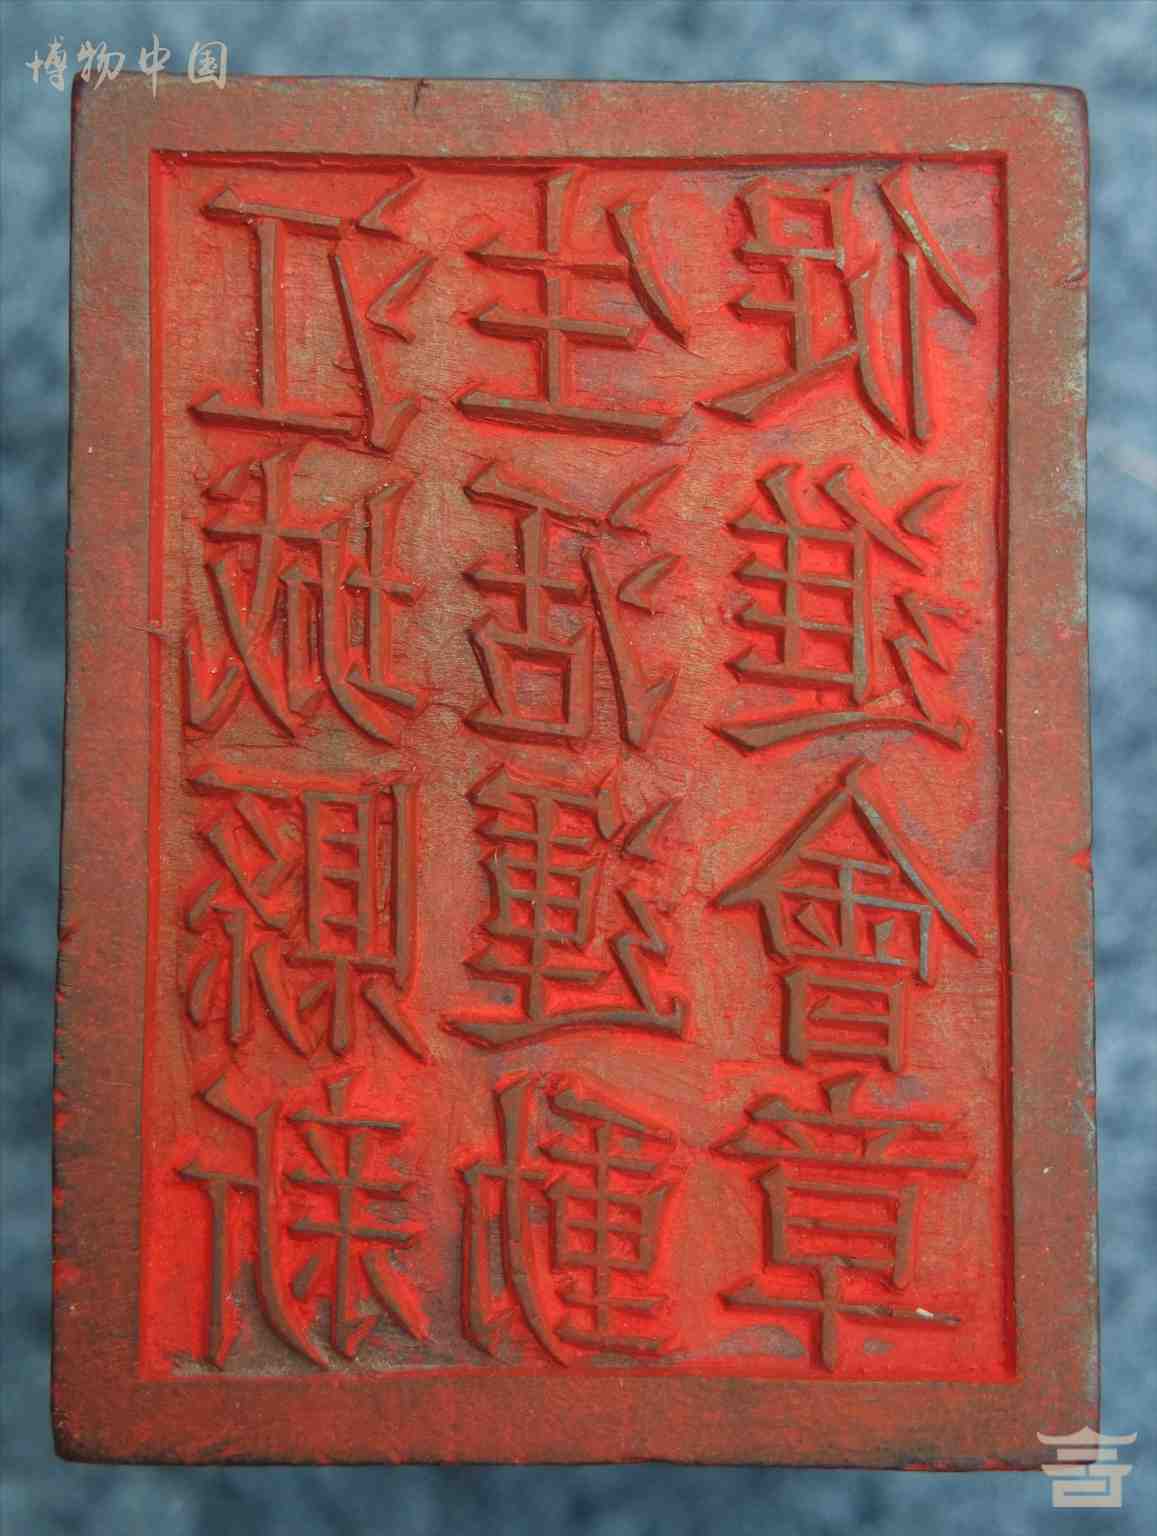 博物中国
江城縣新
生活運動
促進會章